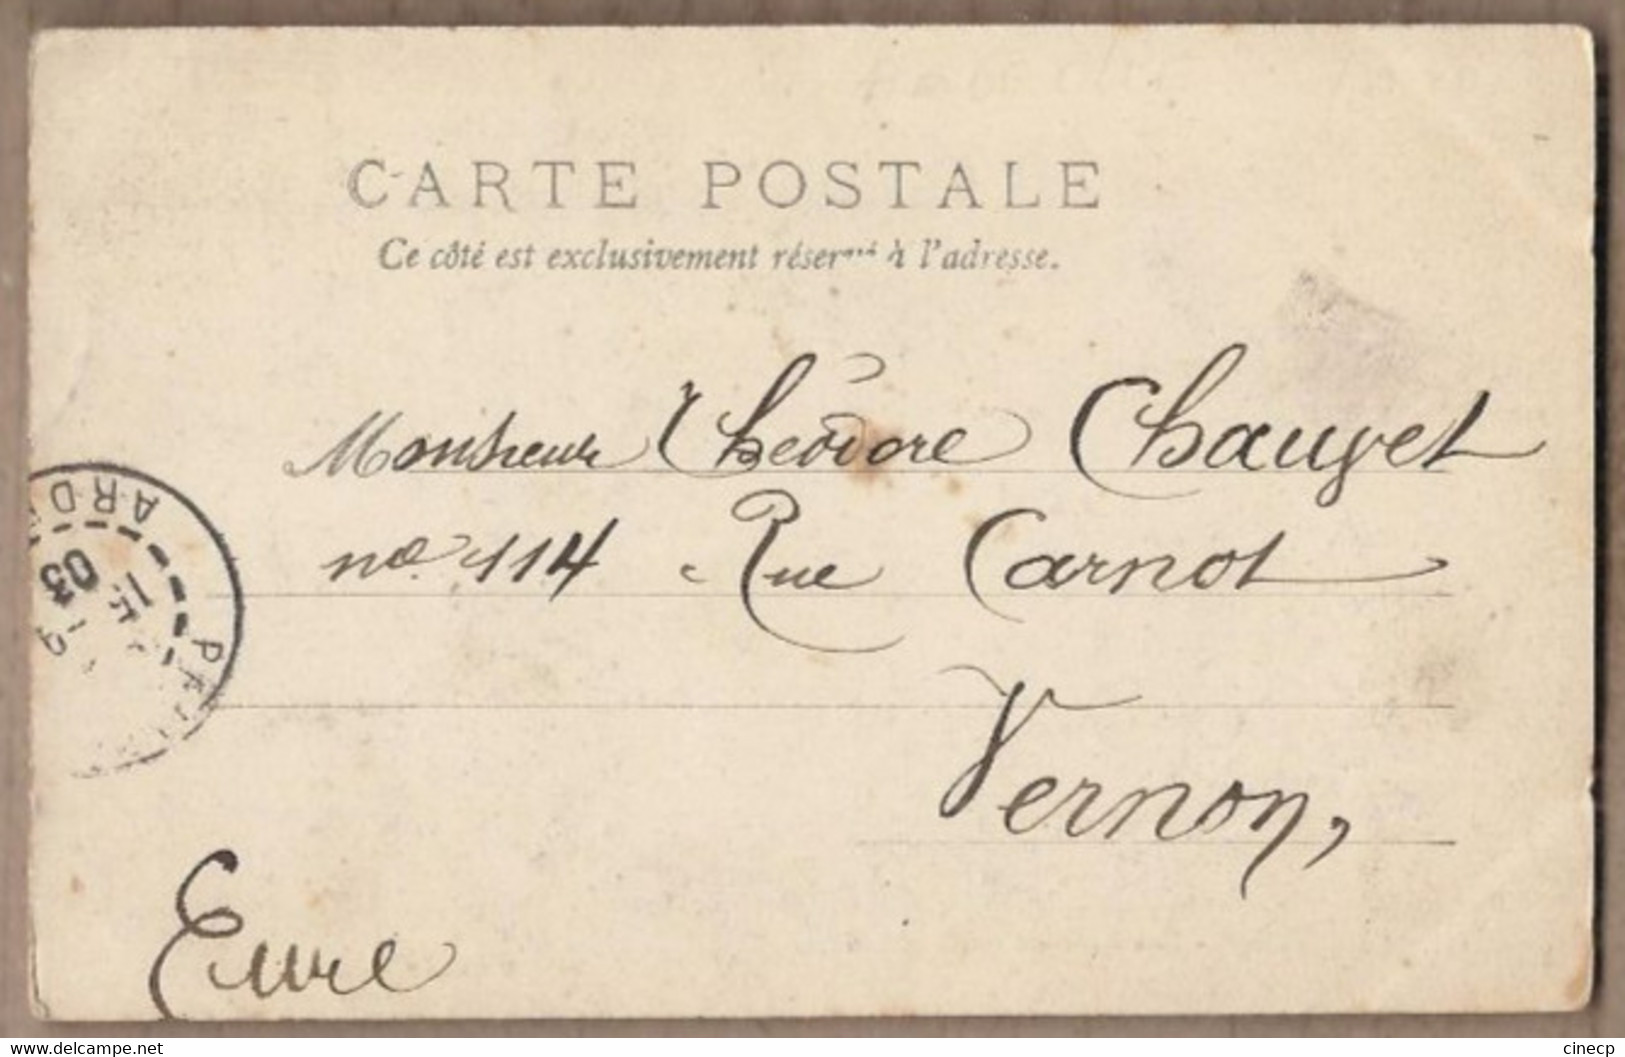 CARTE POSTALE
Ce côté est exclusivement réservé à l'adresse.
Monsieur Théodore Chauvet
no 114 Rue Carnot
Vernon,
Eure
ARD
03
15
www.delcampe.net
cinecp